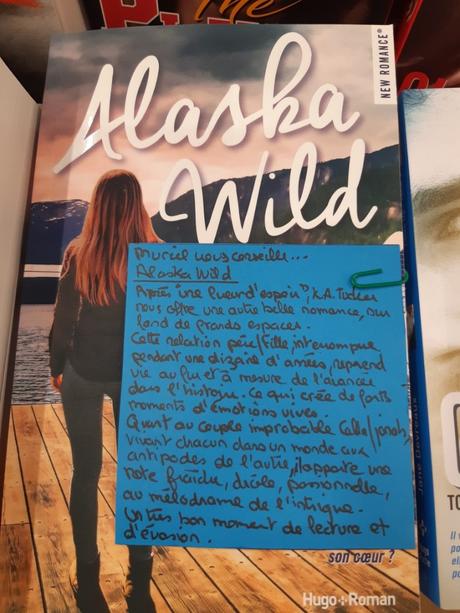 NEW ROMANCE®
Alaska
Wild
Muriel vous conseille...
Alaska Wild
Après "une lueur d'espoir", K.A. Tucker
nous offre une autre belle romance, sur
fond de grands espaces.
Cette relation père/fille, interrompue
pendant une dizaine d'années, reprend
vie au fur et à mesure de l'avancée
dans l'histoire. Ce qui crée de forts
moments d'émotions vives.
Quant au couple improbable Calla/Jonah,
vivant chacun dans un monde aux
antipodes de l'autre, il apporte une
note fraîche, drôle, passionnelle,
au mélodrame de l'intrigue.
Un très bon moment de lecture et
d'évasion.
son cœur ?
Hugo+Roman
TO
Il v
po
el
pa